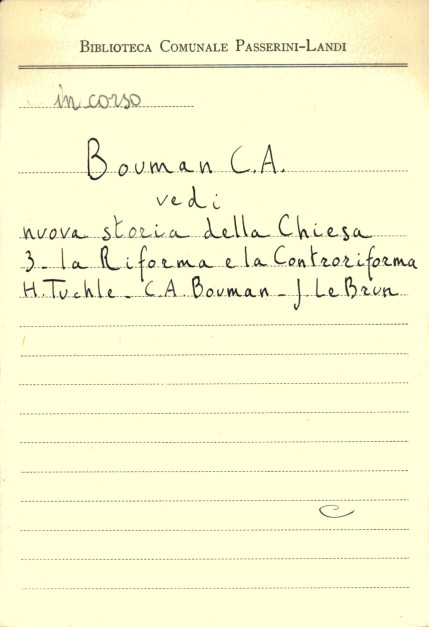 BIBLIOTECA COMUNALE PASSERINI-LANDI
in corso
Bouman C.A.
vedi
nuova storia della Chiesa
3 - la Riforma e la Controriforma
H. Tuchle - C.A. Bouman - J. Le Brun